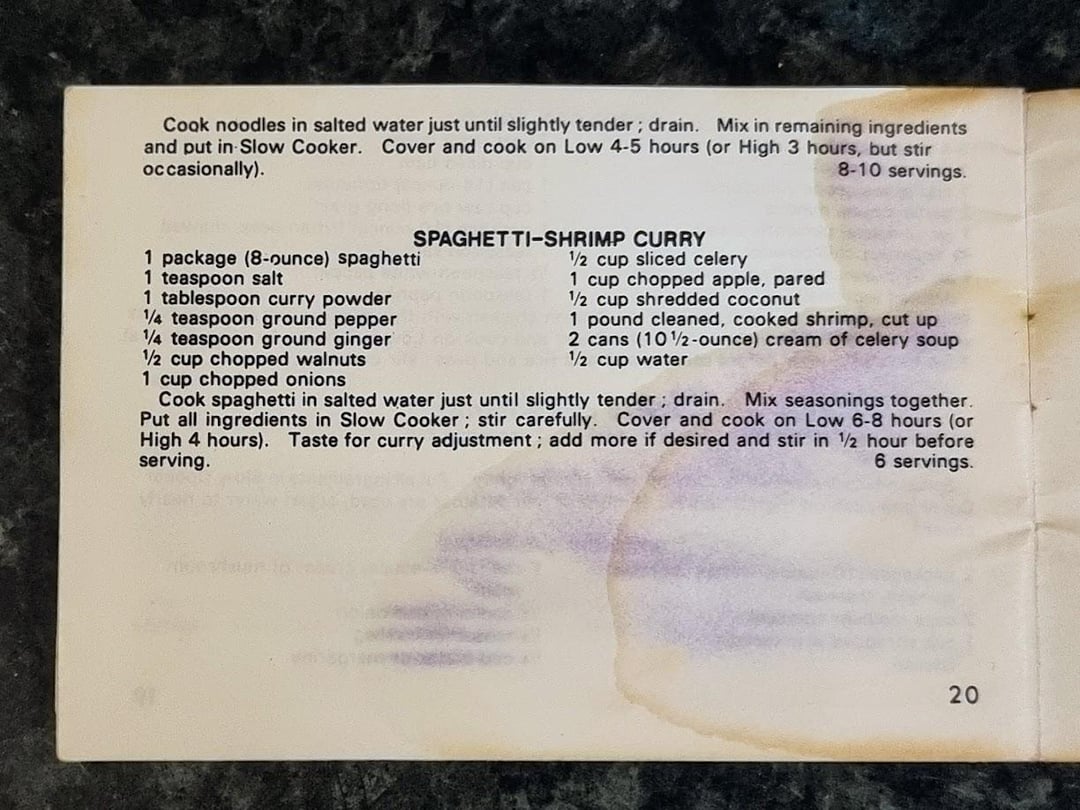 Cook noodles in salted water just until slightly tender ; drain. Mix in remaining ingredients
and put in Slow Cooker. Cover and cook on Low 4-5 hours (or High 3 hours, but stir
occasionally). 8-10 servings.
SPAGHETTI-SHRIMP CURRY
1 package (8-ounce) spaghetti
1 teaspoon salt
1 tablespoon curry powder
1/4 teaspoon ground pepper
1/4 teaspoon ground ginger
1/2 cup chopped walnuts
1 cup chopped onions
1/2 cup sliced celery
1 cup chopped apple, pared
1/2 cup shredded coconut
1 pound cleaned, cooked shrimp, cut up
2 cans (10 1/2-ounce) cream of celery soup
1/2 cup water
Cook spaghetti in salted water just until slightly tender ; drain. Mix seasonings together.
Put all ingredients in Slow Cooker ; stir carefully. Cover and cook on Low 6-8 hours (or
High 4 hours). Taste for curry adjustment ; add more if desired and stir in 1/2 hour before
serving. 6 servings.
20